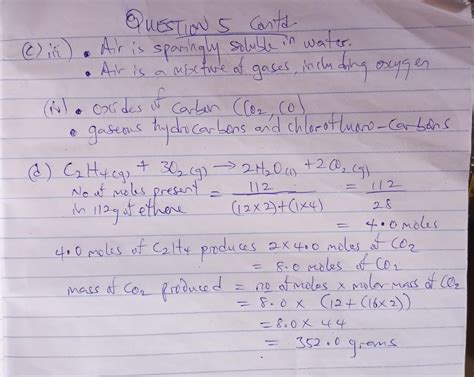 QUESTION 5 Contd.
(c) iii) • Air is sparingly soluble in water.
• Air is a mixture of gases, including oxygen
(iv) • oxides of carbon (CO2, CO)
• gaseous hydrocarbons and chlorofluoro-carbons
(d) C2H4(g) + 3O2(g) → 2H2O(l) + 2CO2(g)
No of moles present = 112 = 112
in 112g of ethene (12x2)+(1x4) 28
= 4.0 moles
4.0 moles of C2H4 produces 2x4.0 moles of CO2
= 8.0 moles of CO2
mass of CO2 produced = no of moles x molar mass of CO2
= 8.0 x (12+(16x2))
= 8.0 x 44
= 352.0 grams